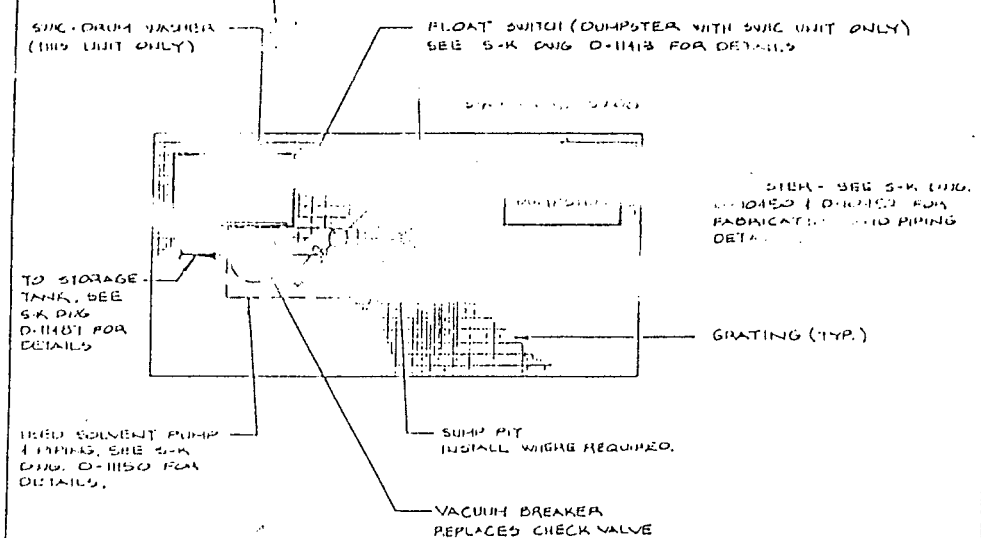 SWIC-DRUM WASHER
(THIS UNIT ONLY)
FLOAT SWITCH (DUMPSTER WITH SWIC UNIT ONLY)
SEE S-K DWG D-11413 FOR DETAILS
SEE S-K DWG.
FOR
PIPING
TO STORAGE
TANK, SEE
S-K DWG
FOR
DETAILS
GRATING (TYP.)
USED SOLVENT PUMP
& PIPING, SEE S-K
DWG. D-11150 FOR
DETAILS.
SUMP PIT
INSTALL WHERE REQUIRED.
VACUUM BREAKER
REPLACES CHECK VALVE